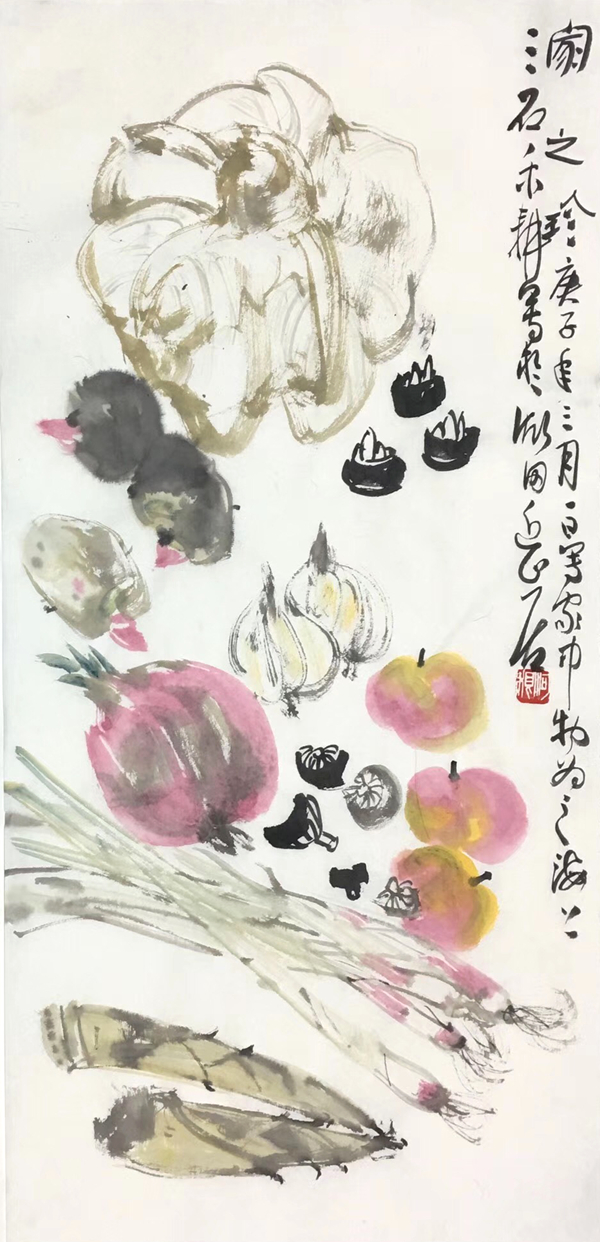 園之珍庚子年三月一日写家中物为之海上
三石禾耕写於